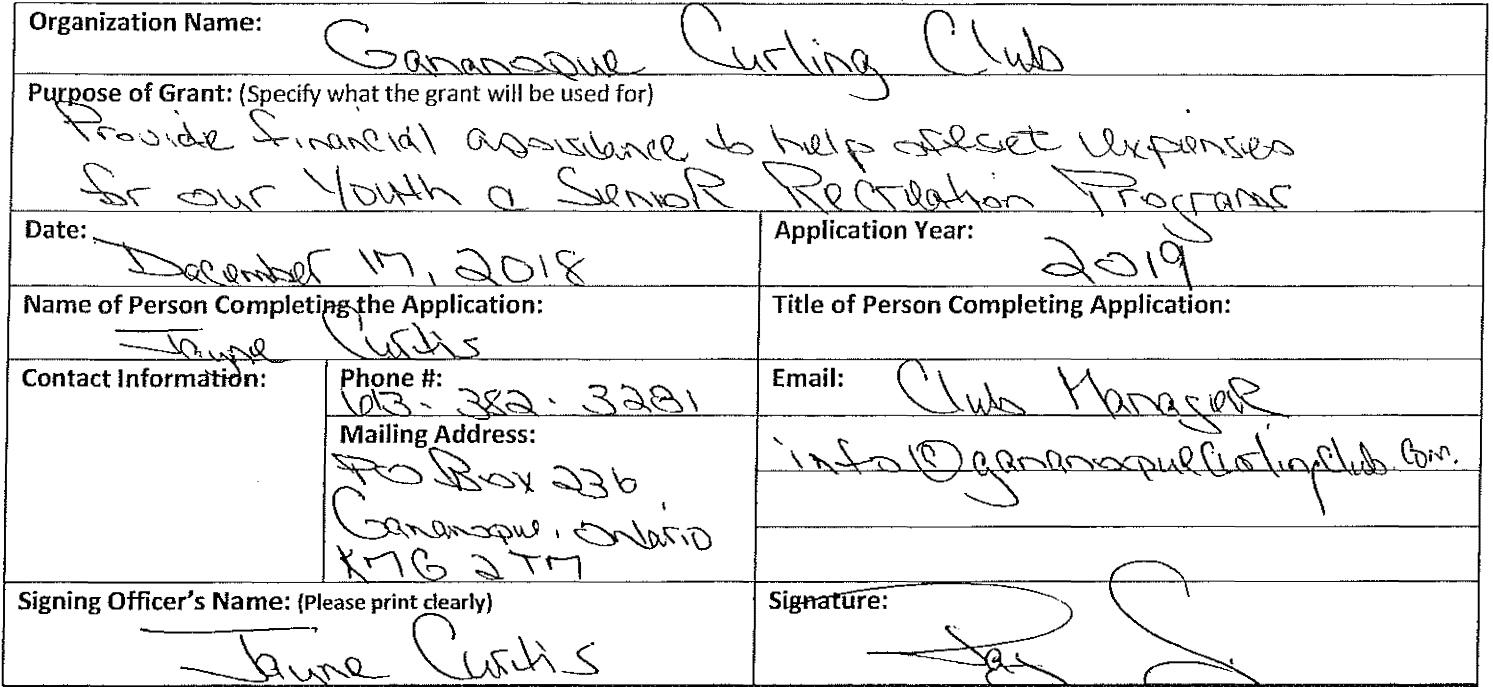 Organization Name:
Gananoque Curling Club
Purpose of Grant: (Specify what the grant will be used for)
Provide financial assistance to help offset expenses
for our Youth & Senior Recreation Programs
Date:
December 17, 2018
Application Year:
2019
Name of Person Completing the Application:
Jayne Curtis
Title of Person Completing Application:
Contact Information:
Phone #:
613-382-3281
Email:
Club Manager
Mailing Address:
PO Box 236
Gananoque, Ontario
K7G 2T7
info@gananoquecurlingclub.com.
Signing Officer's Name: (Please print clearly)
Jayne Curtis
Signature: